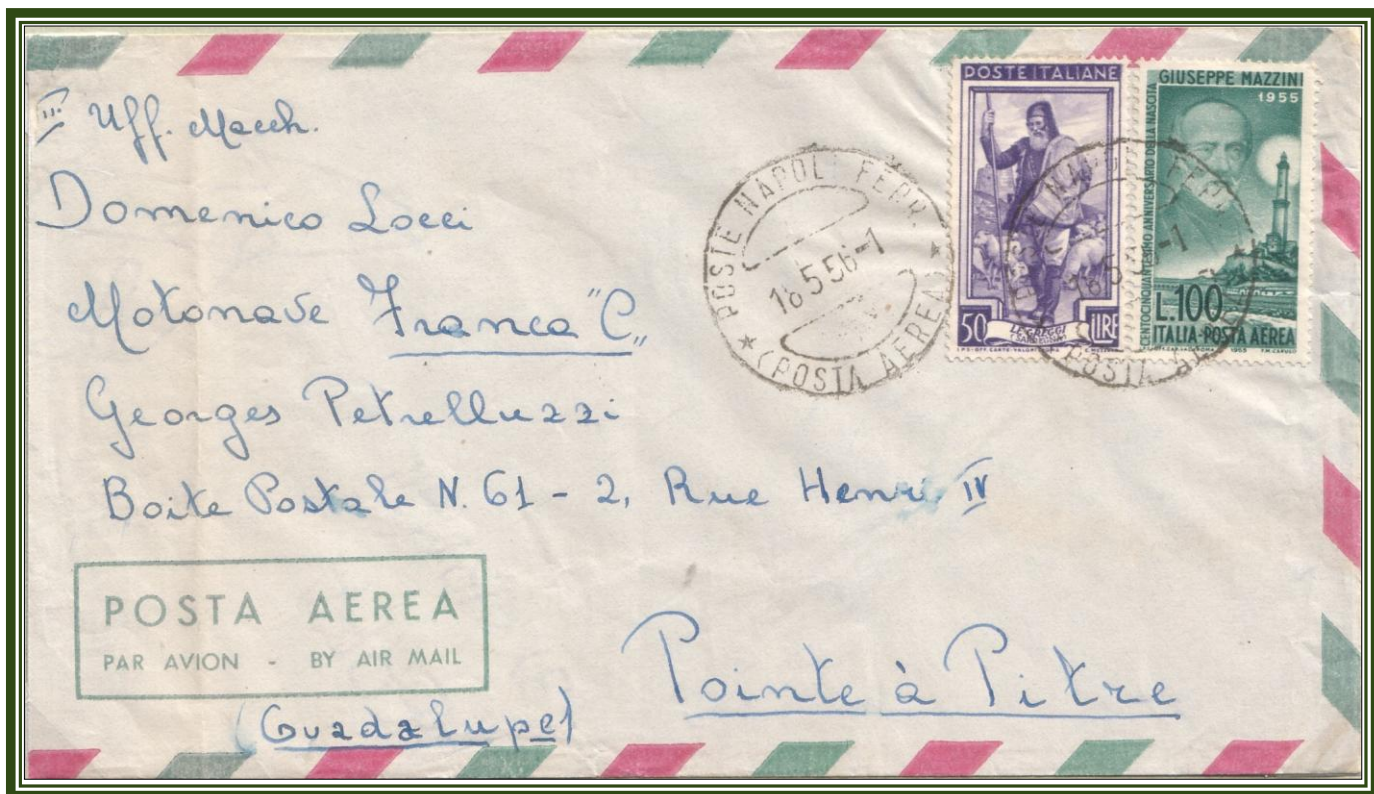 III Uff. Macch.
Domenico Locci
Motonave Franca "C"
Georges Petrelluzzi
Boite Postale N. 61 - 2, Rue Henri IV
Pointe à Pitre
(Guadalupe)
POSTA AEREA
PAR AVION - BY AIR MAIL
POSTE NAPOLI FERR.
18.5.56-1
(POSTA AEREA)
POSTE ITALIANE
50 LIRE
GIUSEPPE MAZZINI
1955
CENTOCINQUANTESIMO ANNIVERSARIO DELLA NASCITA
L.100
ITALIA-POSTA AEREA